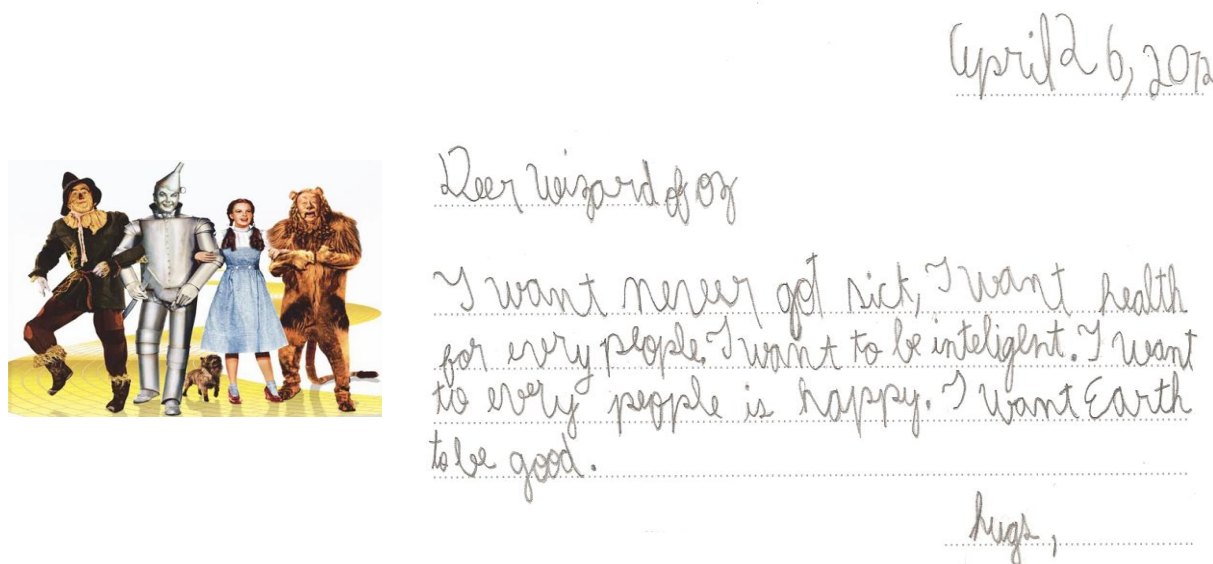 April 26, 2012
Deer Wizard of Oz
I want never got sick, I want health
for every people. I want to be inteligent. I want
to every people is happy. I want Earth
to be good.
hugs,